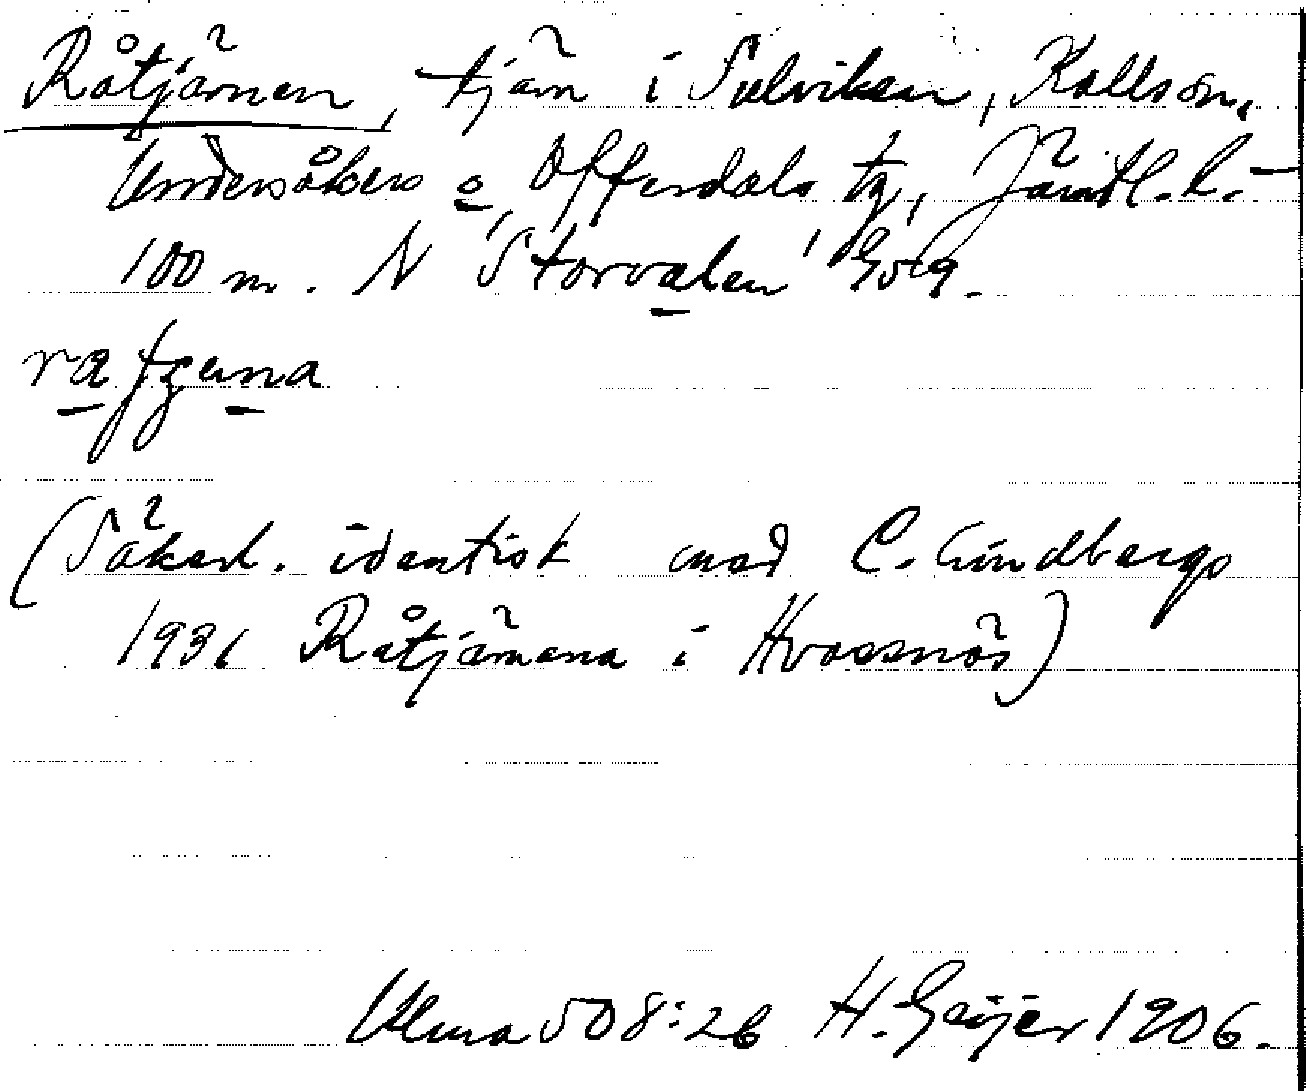 Råtjärnen, tjärn i Sulviken, Kallssn,
Undersåkers o Offerdals tg, Jämtl. l. –
100 m. N 'Storvalen'
(Säkerl. identisk med C. Lindbergs
1931 Råtjärnana i Kvassnäs)
Ulma 508:26 H. Geijer 1906.